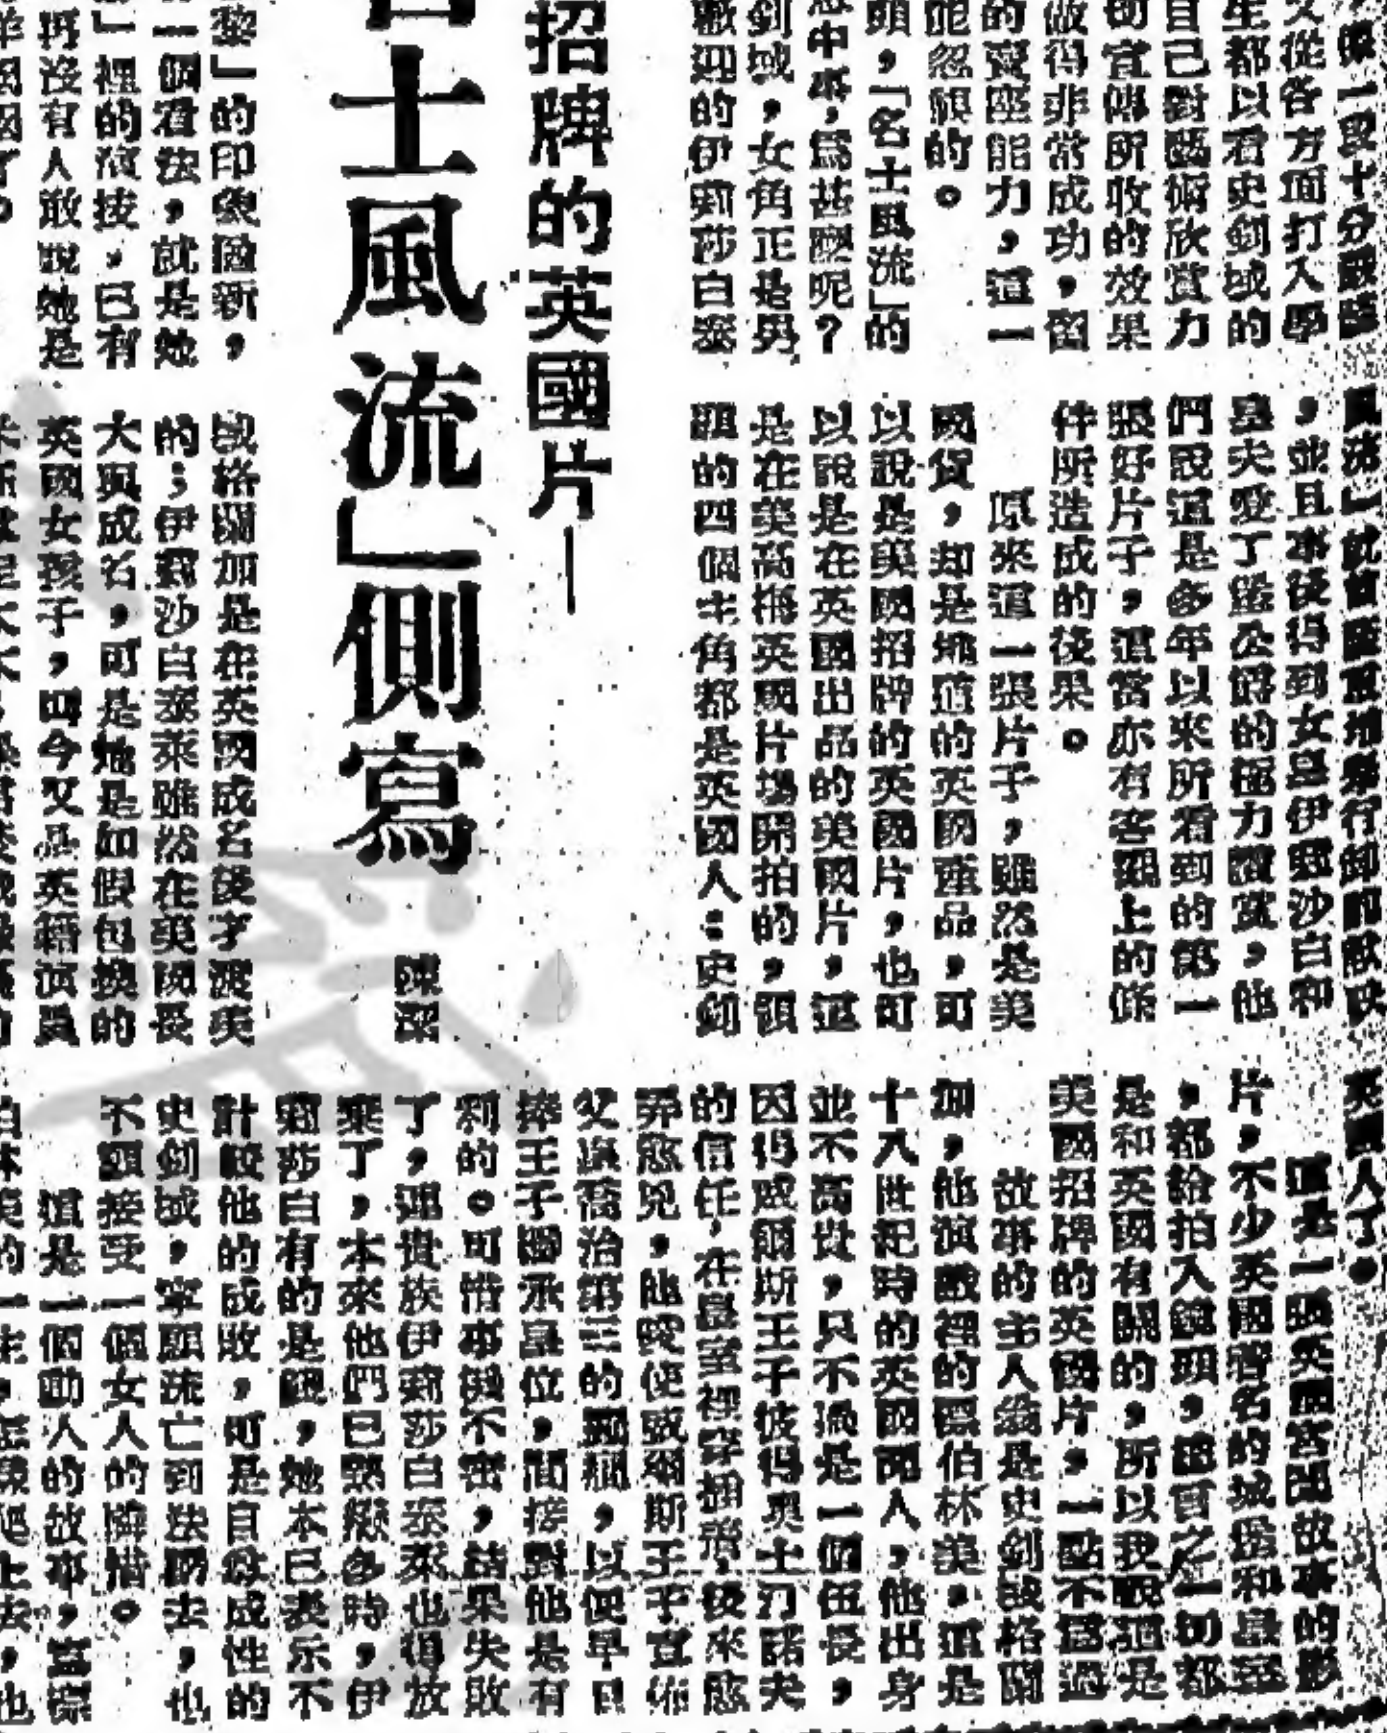 又從各方面打入學
生都以君史劍域的
自己對藝術欣賞力
切宣傳所收的效果
做得非常成功，留
的賣座能力，這一
能忽視的。
頭，「名士風流」的
意中事，為甚麼呢？
劍域，女角正是男
歡迎的伊莉莎白泰
招牌的英國片——
士風流」側寫
陳潔
黎」的印象猶新，
一個看法，就是她
」裡的演技，已有
再沒有人敢說她是
，並且事後得到女皇伊莉沙白和
皇夫愛丁堡公爵的極力讚賞，他
們說這是多年以來所看到的第一
張好片子，這當亦有客觀上的條
件所造成的後果。
原來這一張片子，雖然是美
國貨，却是地道的英國產品，可
以說是美國招牌的英國片，也可
以說是在英國出品的美國片，這
是在美高梅英國片場開拍的，領
銜的四個主角都是英國人：史劍
域格蘭加是在英國成名後才渡美
的；伊莉沙白泰萊雖然在美國長
大與成名，可是她是如假包換的
英國女孩子，叫今又是英籍演員
英國人了。
這是一張英國宮闈故事的影
片，不少英國著名的城堡和皇室
，都給拍入鏡頭，總言之一切都
是和英國有關的，所以我說這是
美國招牌的英國片，一點不為過
故事的主人翁是史劍域格蘭
加，他演戲裡的標伯林美，這是
十八世紀時的英國聞人，他出身
並不高貴，只不過是一個伍長，
因得威爾斯王子彼得奧士刃諾夫
的信任，在皇室裡穿插着，後來應
弄愈兇，他唆使威爾斯王子宣佈
父皇喬治第三的瘋癲，以便早日
捧王子繼承皇位，間接對他是有
利的。可惜事機不密，結果失敗
了，連貴族伊莉莎白泰萊也得放
棄了，本來他們已熱戀多時，伊
莉莎白有的是錢，她本已表示不
計較他的成敗，可是自尊成性的
史劍域，寧願流亡到法國去，也
不願接受一個女人的憐惜。
這是一個動人的故事，當標